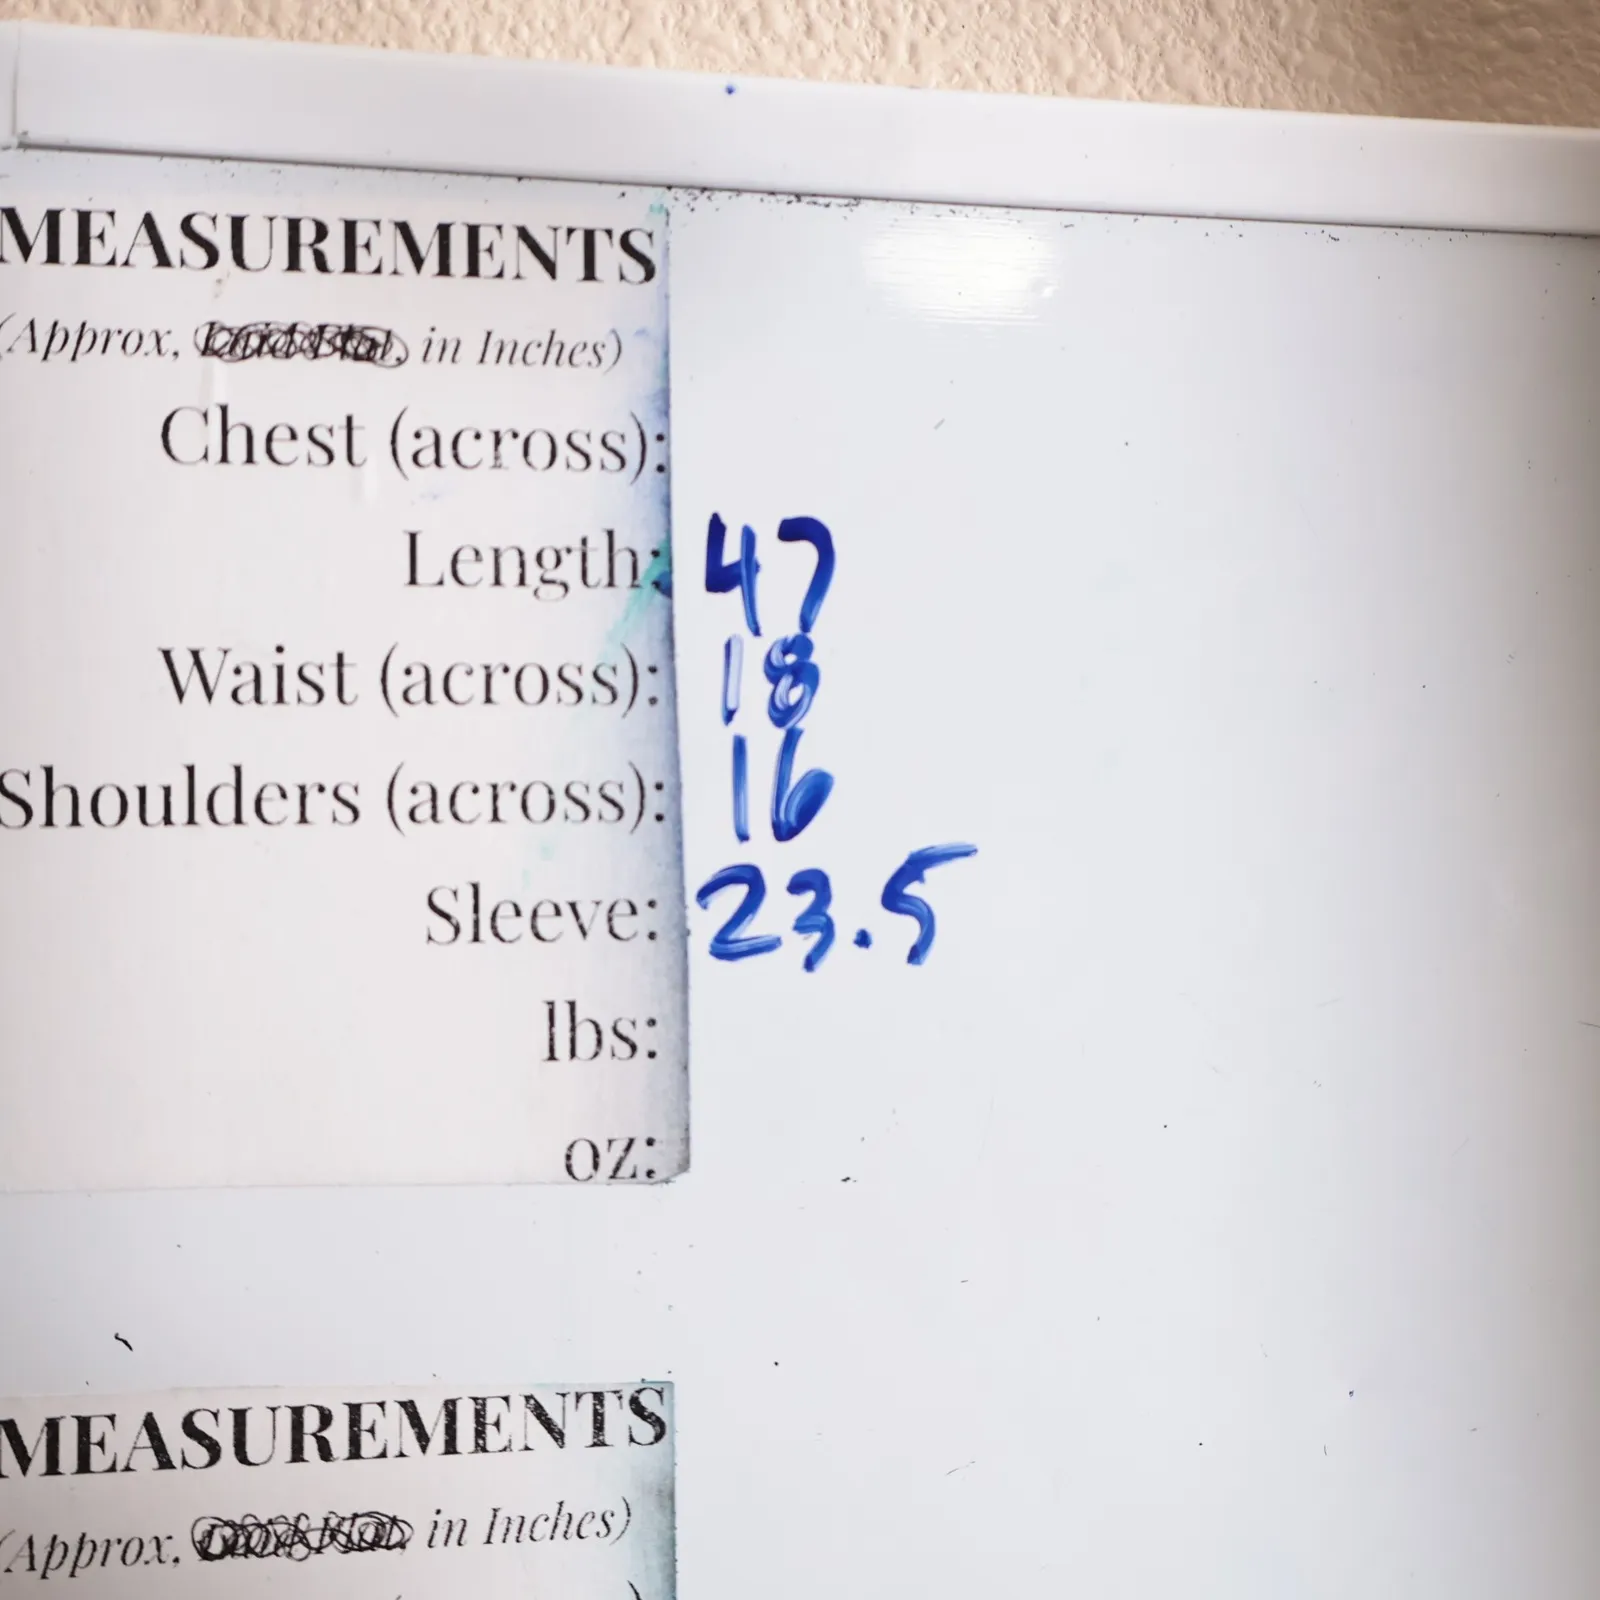 MEASUREMENTS
(Approx, in Inches)
Chest (across):
Length: 47
Waist (across): 18
Shoulders (across): 16
Sleeve: 23.5
lbs:
oz:
MEASUREMENTS
(Approx, in Inches)